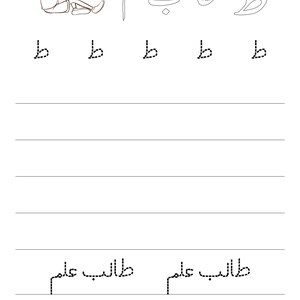 ط ط ط ط ط
طالب علم طالب علم